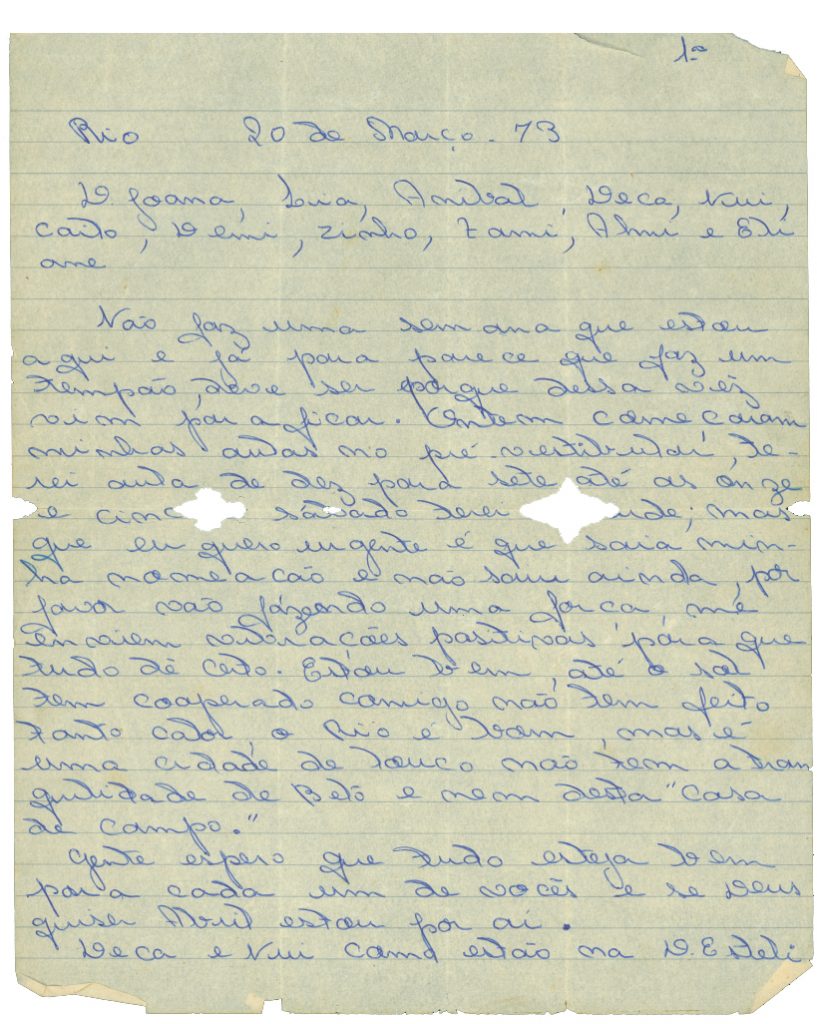 1ª
Rio 20 de Março - 73
D. Joana, Lia, Anibal, Deca, Nui,
Caito, Demi, Zinho, Zami, Almi e Eli
ane
Não faz uma semana que estou
aqui e já para parece que faz um
tempão, deve ser porque dessa vêz
vim para ficar. Ontem começaram
minhas aulas no pré-vestibular, te-
rei aula de dez para sete até as onze
e cinc sábado terei ude; mas
que eu quero urgente é que saia min-
ha nomeação e não saiu ainda, por
favor vão fazendo uma força, me
enviem vibrações positivas para que
tudo dê certo. Estou bem, até o sol
tem cooperado comigo não tem feito
tanto calor, o Rio é bom, mas é
uma cidade de louco não tem a tran
quilidade de Belô e nem desta "casa
de campo."
Gente espero que tudo esteja bem
para cada um de vocês e se Deus
quiser Abril estou por aí.
Deca e Nui como estão na D. Esteli